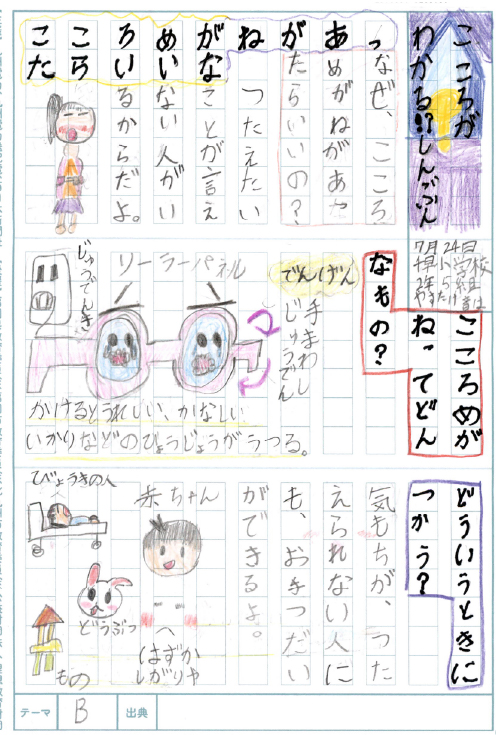 こころが
わかる!?しんぶん
7月24日
こころめがねがあっ
たらいいな
なぜ、こころ
めがねがあっ
たらいいの?
つたえたい
ことが言え
ない人がい
るからだよ。
こころめが
ねってどん
なもの?
でんげん
手まわし
じゅうでん
ソーラーパネル
じゅうでんき
かけるとうれしい、かなしい
いかりなどのひょうじょうがうつる。
どういうときに
つかう?
気もちが、つた
えられない人に
も、おてつだい
ができるよ。
赤ちゃん
はずか
しがりや
びょうきの人
どうぶつ
もの
テーマ
B
出典